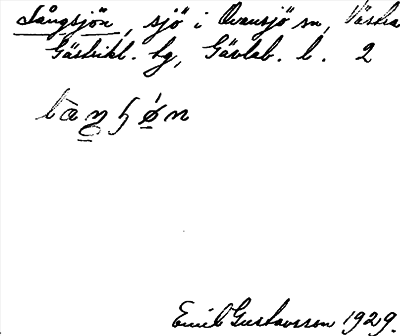 Långsjön, sjö i Ovansjö sn, Västra
Gästrikl. tg, Gävleb. l. 2
Emil Gustavsson 1929.